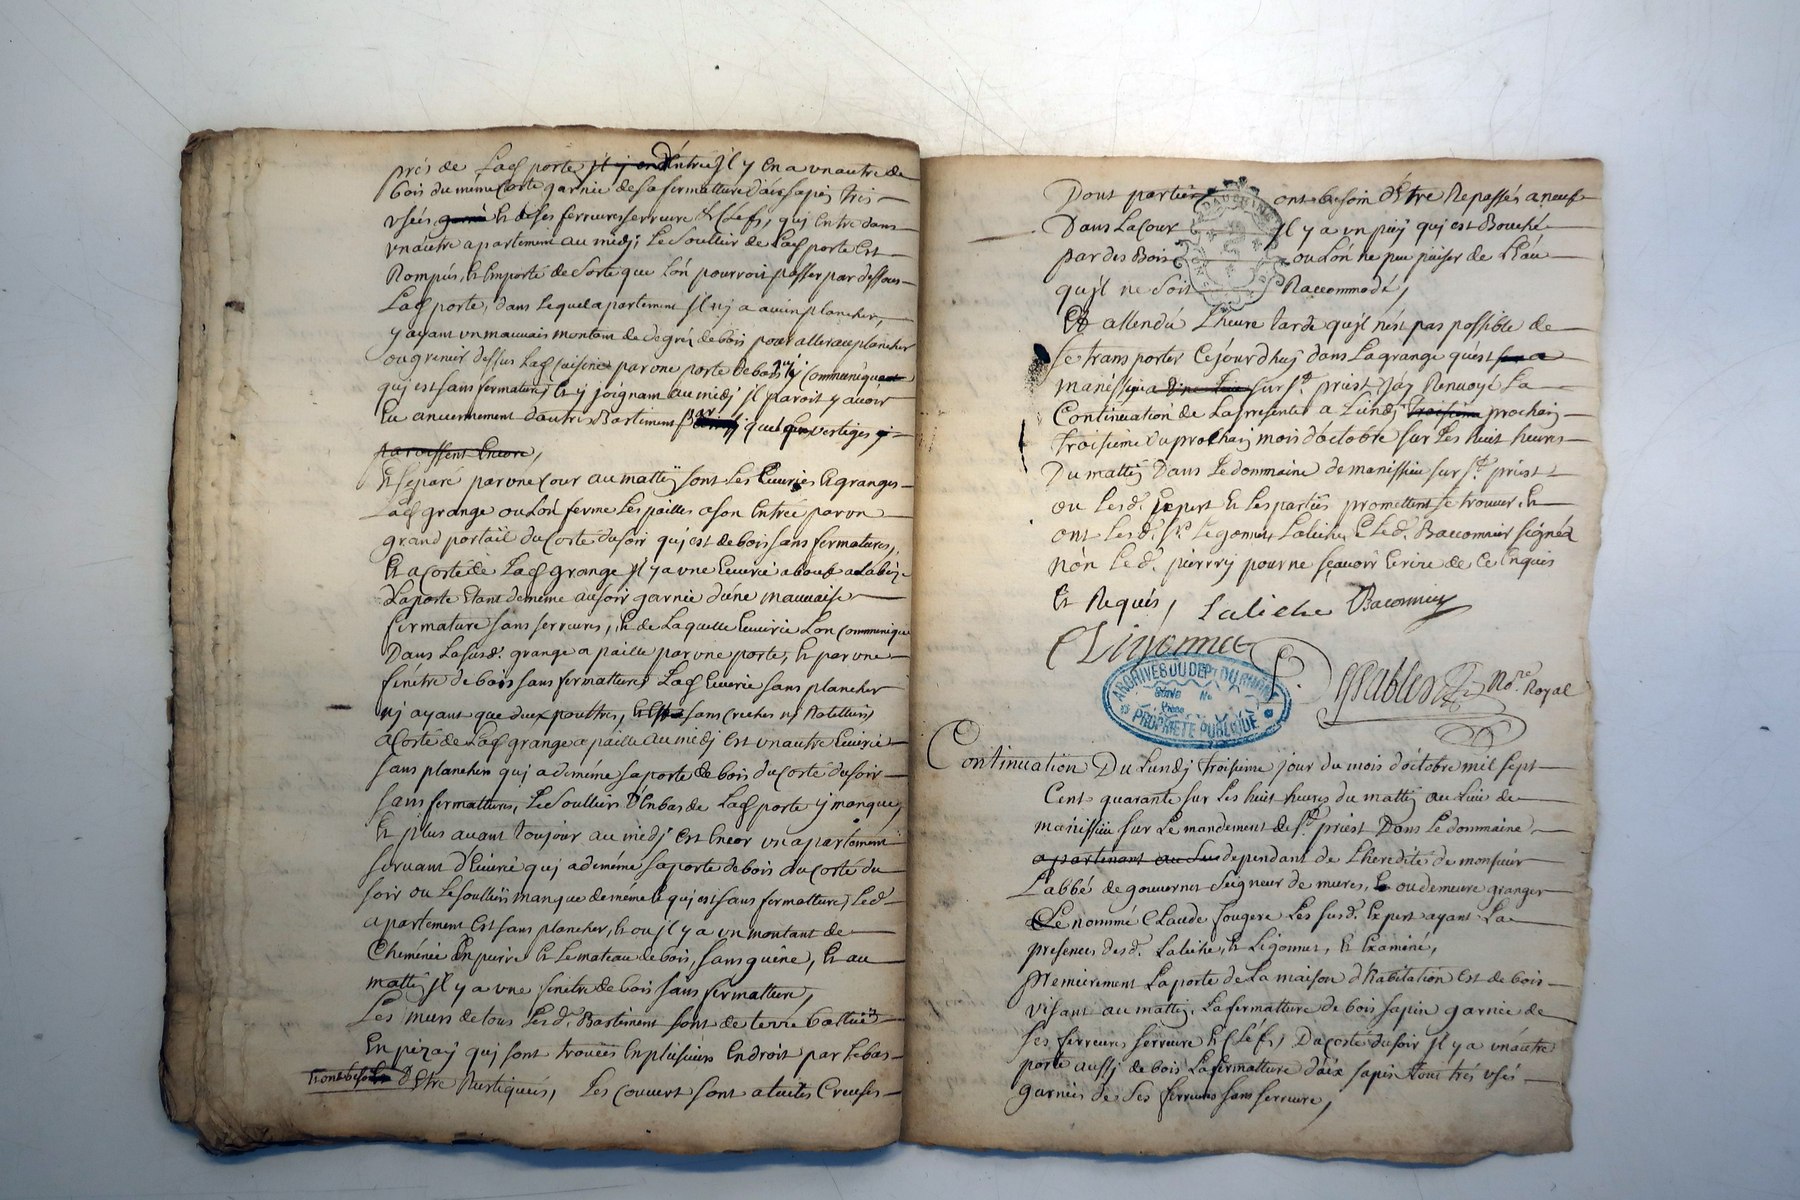 près de Lad porte il y en D'entrée Il y En a un autre de
bois du meme Costé garnie de sa fermatture d'aix sapin très
usés garnie Et de ses ferrures serrure Et Clefs, qui Entre dans
un autre apartement au midj; Le Soullier de Lad porte Est
Rompüs, Et Emporté de Sorte que L'on pourroit passer par dessous
Lad porte, dans Lequel apartement Il nj a aucun plancher,
y ayant un mauvais montant de degréz de bois pour aller au plancher
ou grenier dessus Lad Cuisine par une porte de bois qui y Communique
qui est sans fermature, Et y joignant au midj il paroit y avoir
Eu anciennement d'autres Bastiment par quelques vestiges qi
paroissent Encore,
Et separé par une Cour au mattin sont Les Ecuries Et granges
Lad grange ou L'on ferme Les pailles a son Entrée par un
grand portail du Costé du soir qui est de bois sans fermatures,
Et a Costé de Lad grange Il y a une Ecurie a boeufs a Labise
La porte Etant de meme au soir garnie d'une mauvaise
fermature sans ferrures, Et de Laquelle Ecurie L'on Communique
Dans La susd. grange a paille par une porte, Et par une
fenêtre de bois sans fermatture, Lad Ecurie sans plancher
nj ayant que deux pouttres, Et sans Creches nj Ratelliers
a Costé de Lad grange a paille au midj est un autre Ecurie
sans plancher qui a de même sa porte de bois du Costé du soir
sans fermatture, Le Soullier D'Enbas de Lad porte y manque,
Et plus avant toujour au midj est Encor un apartement
servant d'Ecurie qui a de même sa porte de bois du Costé du
soir ou Le Soullier manque de même & qui est sans fermatture, Led.
apartement Est sans plancher, Et ou il y a un montant de
Cheminée En pierre Et Le mateau de bois, sans guêne, Et au
mattin Il y a une fenêtre de bois sans fermatture,
Les murs de tous Lesd. Bastiment sont de terre battüe
En pizay qui sont trouées En plusieurs Endroit par Le bas
Et ont besoin D'Etre Rustiqués, Les Couvert sont a tuiles Creuses
Dont parties ont besoin d'Etre Repassés a neuf
Dans La Cour Il y a un puy qui est Bouché
par des Bois ou L'on ne peu puiser de L'eau
qu'il ne soit Raccommodé,
Et attendu L'heure tarde qu'il n'est pas possible de
se transporter Cejourd'huj dans La grange qu'est
manissieu sur St. priest J'ay Renvoyé La
Continuation de La presente a Lundj troisième prochain
troisième du prochain mois d'octobre sur Les huit heures
Du mattin Dans Le dommaine de manissieu sur St. priest
ou Lesd. Expert Et Les parties promettent se trouver, Et
ont Lesd. Srs Legonnet, Laliche, & Led. Baconnier signéz
non Led. pierry pour ne sçavoir Ecrire de Ce Enquis
Et Requis, Laliche Baconnier
Desrables Nore. Royal
ARCHIVES DU DEPT DU RHONE
Série No
Pièce
PROPRIETE PUBLIQUE
Continuation Du Lundj troisieme jour du mois d'octobre mil sept
Cent quarante sur Les huit heures du mattin au Lieu de
manissieu sur Le mandement de St. priest Dans Le dommaine
apartenant au Sus dependant de L'heredité de monsieur
L'abbé de gouvernet Seigneur de mures, & ou demeure granger
Le nommé Claude fougere Les susd. Expert ayant La
presence desd. Laliche, Et Legonnet, Et Examiné,
Premierement La porte de La maison d'habitation Est de bois
visant au mattin, La fermatture de bois sapin garnie de
ses ferrures serrure Et Clefs, Du costé du soir Il y a un autre
porte aussj de bois La fermatture d'aix sapin tous très usés
garnies de ses ferrures sans serrure,